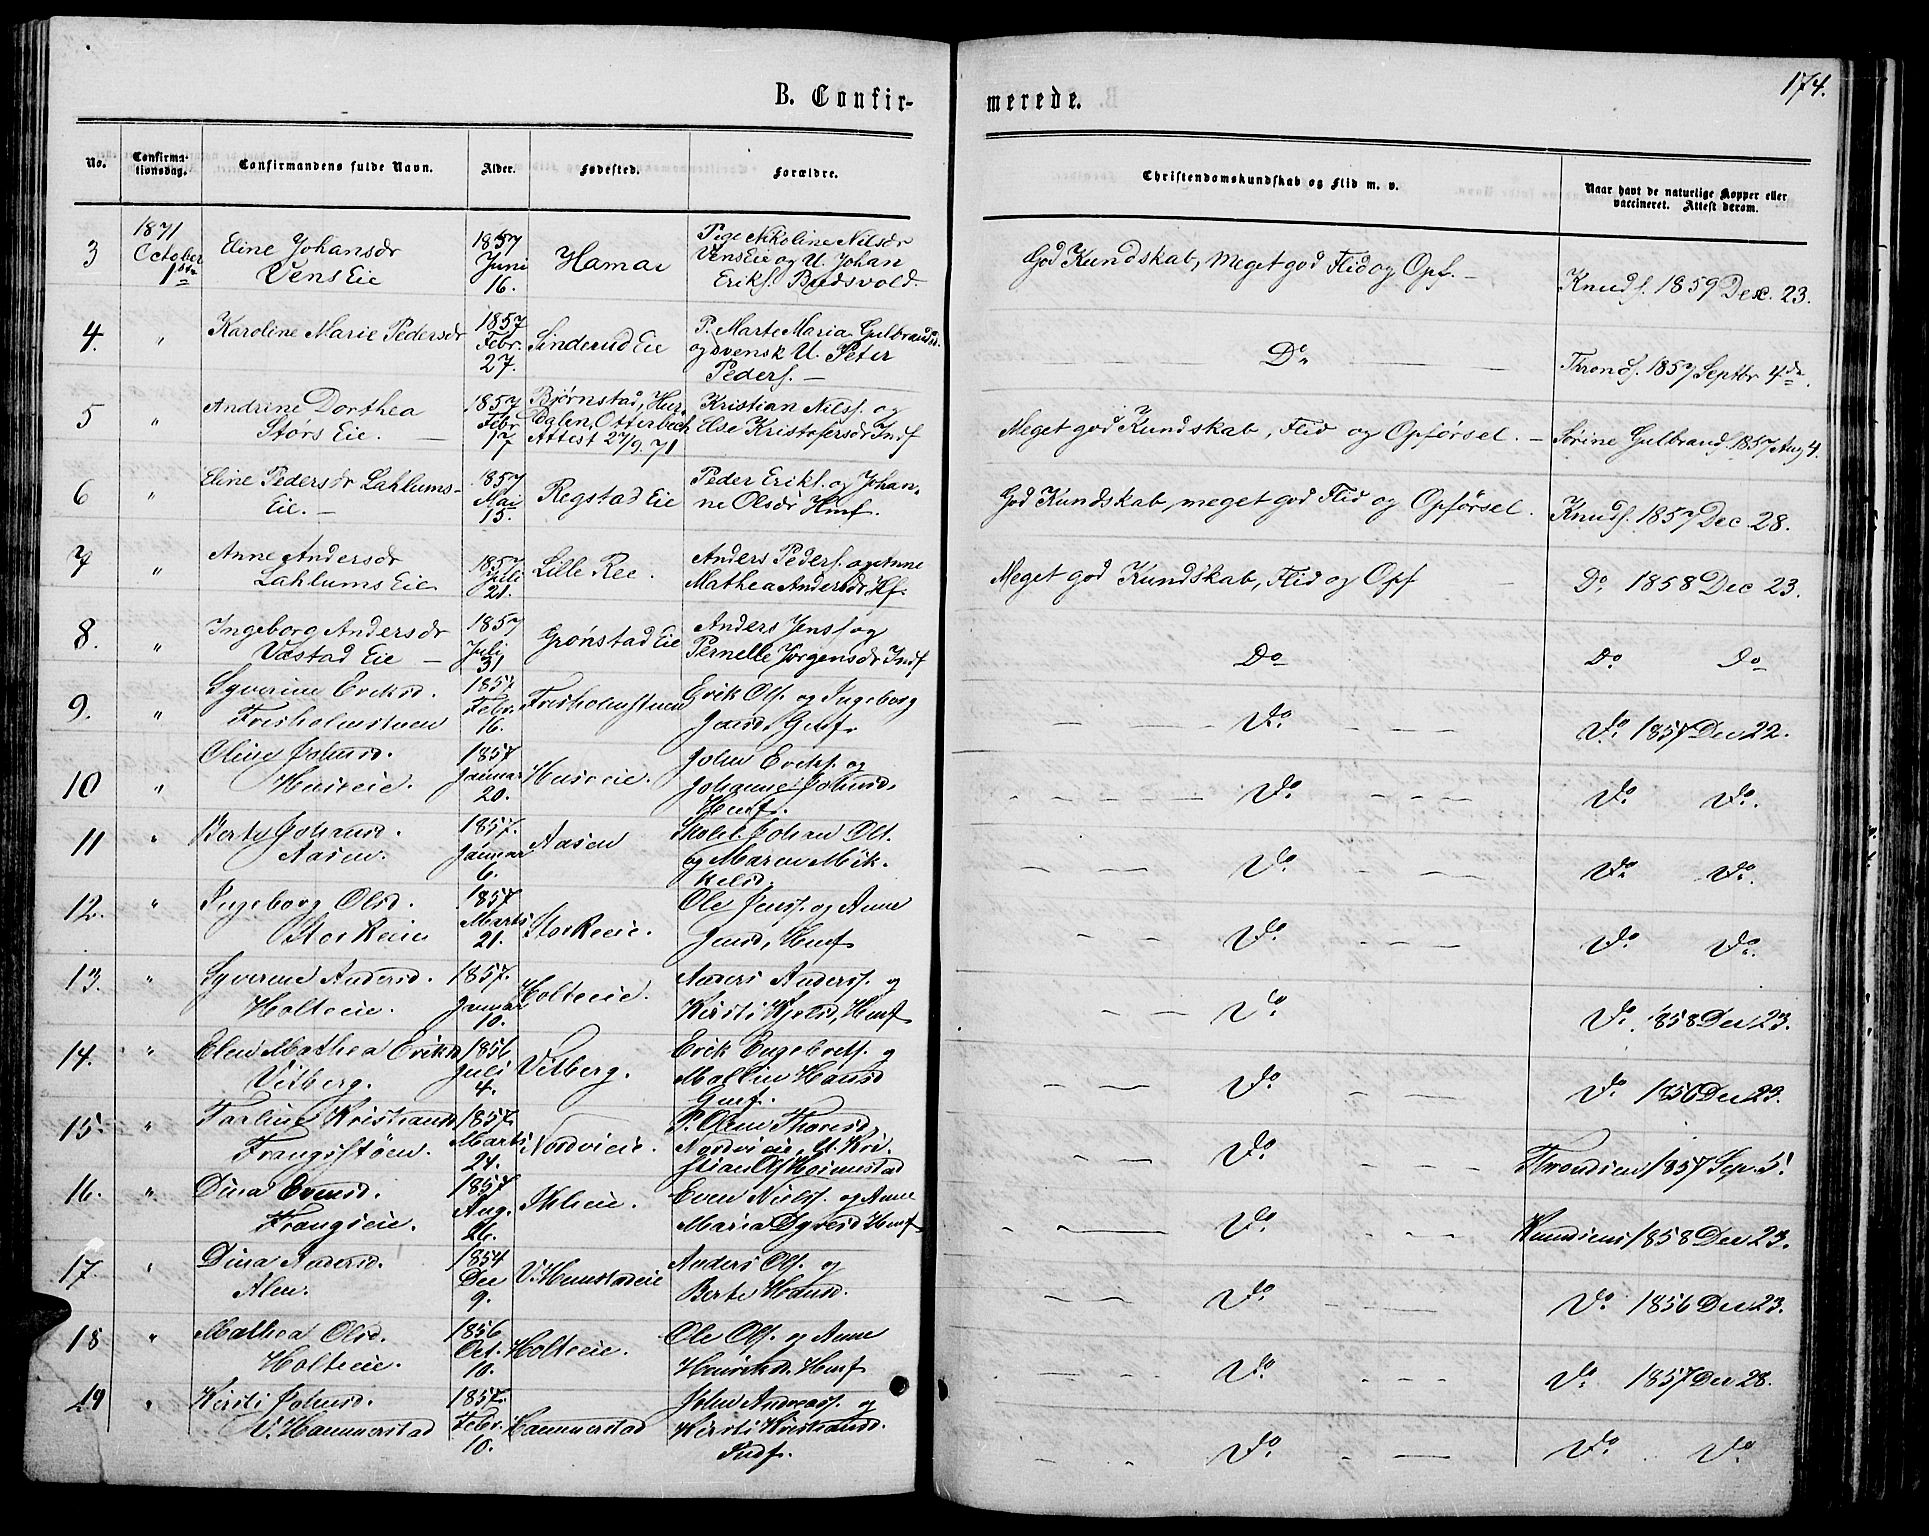 B. Confir-
merede.
174.
No.
Confirma-
tionsdag.
Confirmandens fulde Navn.
Alder.
Fødested.
Forældre.
Christendomskundskab og Flid m. v.
Naar havt de naturlige Kopper eller
vaccineret. Attest derom.
3
1871
October
1ste
Eline Johansdr
Vens Eie
1857
Juni
16.
Hamar
Pige Nikoline Nilsdr
Vens Eie og U. Johan
Eriks. Bydsvold.
God Kundskab, meget god Flid og Opf. -
Knuds. 1859 Dec. 23.
4.
"
Karoline Marie Pedersdr
1857
Febr.
27.
Sinderud Eie
P. Marte Maria Gulbrandsd.
og svensk U. Peter
Peders. -
Do
Thronds. 1857 Septbr 4de.
5
"
Andrine Dorthea
Størs Eie. -
1857
Febr
17
Bjørnstad, Hur
dalen, Otterbech
Attest 27/9 71
Kristian Nilss. og
Else Kristofersdr Indf
Meget god Kundskab, Flid og Opførsel. -
Sørine Gulbrands. 1857 Aug 4.
6
"
Eline Pedersdr Lahlums-
Eie. -
1857
Mai
15.
Regstad Eie
Peder Eriks. og Johan-
ne Olsdr Hmf.
God Kundskab, meget god Flid og Opførsel.
Knuds. 1857 Dec 28.
7
"
Anne Andersdr
Lahlums Eie
1857
Juli
21.
Lille Ree.
Anders Peders. og Anne
Mathea Andersdr Hf.
Meget god Kundskab, Flid og Opf
Do 1858 Dec 23.
8.
"
Ingeborg Andersdr
Væstad Eie -
1857
Juli
31
Grønstad Eie
Anders Jens. og
Pernelle Jørgensdr Indf
Do
Do Do
9.
"
Syverine Eriksd.
Frisholmstuen
1857
Febr.
16.
Frisholmstuen
Erik Ols. og Ingeborg
Jensd, Gmf.
Do.
Do. 1857 Dec 22.
10
"
Oline Johnsd.
Huseeie.
1857
Januar
20.
Huseeie.
John Eriks. og
Johanne Johnsd,
Hmf.
Do.
Do. Do.
11
"
Berte Johnsd.
Aasen.
1857.
Januar
6.
Aasen
Johan Ols.
og Maren Mik-
kelsd.
Do.
Do. Do.
12.
"
Ingeborg Olsd.
Storkeeie
1857
Marts
21.
Storkeeie.
Ole Jenss. og Anne
Jensd, Hmf.
Do.
Do. Do.
13.
"
Syverine Andersd.
Holteeie.
1857.
Januar
10.
Holteeie.
Anders Anderss. og
Kirsti Kjelsd, Hmf.
Do
Do. 1858 Dec 23.
14.
"
Elen Mathea Eriksd
Vitberg.
1856
Juli
4.
Vitberg.
Erik Engebrets. og
Mallin Hansd
Gmf.
Do.
Do. 1856 Dec 23.
15.
"
Karline Kristiansd
Frangsstøen.
1857.
Marts
24.
Nordvieie.
P. Oline Thoresd,
Nordvieie, U. Kri-
stian Ols Heimstad
Do.
Throndsens 1857 Sep. 5.
16.
"
Dina Evensd.
Frangseie.
1857
Aug.
26.
Even Nielss. og Anne
Maria Syversd Hmf
Do.
Knudsens 1858 Dec 23.
17
"
Dina Andersd.
Alen.
1854
Dec
9.
V. Hemstadeie
Anders Ols. og
Berte Hansd.
Do.
Do. 1856 Dec 23.
18
"
Mathea Olsd.
Holteeie.
1856
Oct.
10.
Holteeie.
Ole Ols. og Anne
Henriksd. Hmf.
Do.
Do. 1857 Dec 28.
19
"
Kirsti Johnsd.
V. Hammerstad
1857.
Febr.
10.
Hammerstad
John Andreass. og
Kirsti Kristiansd.
Indf.
Do.
Do. Do.